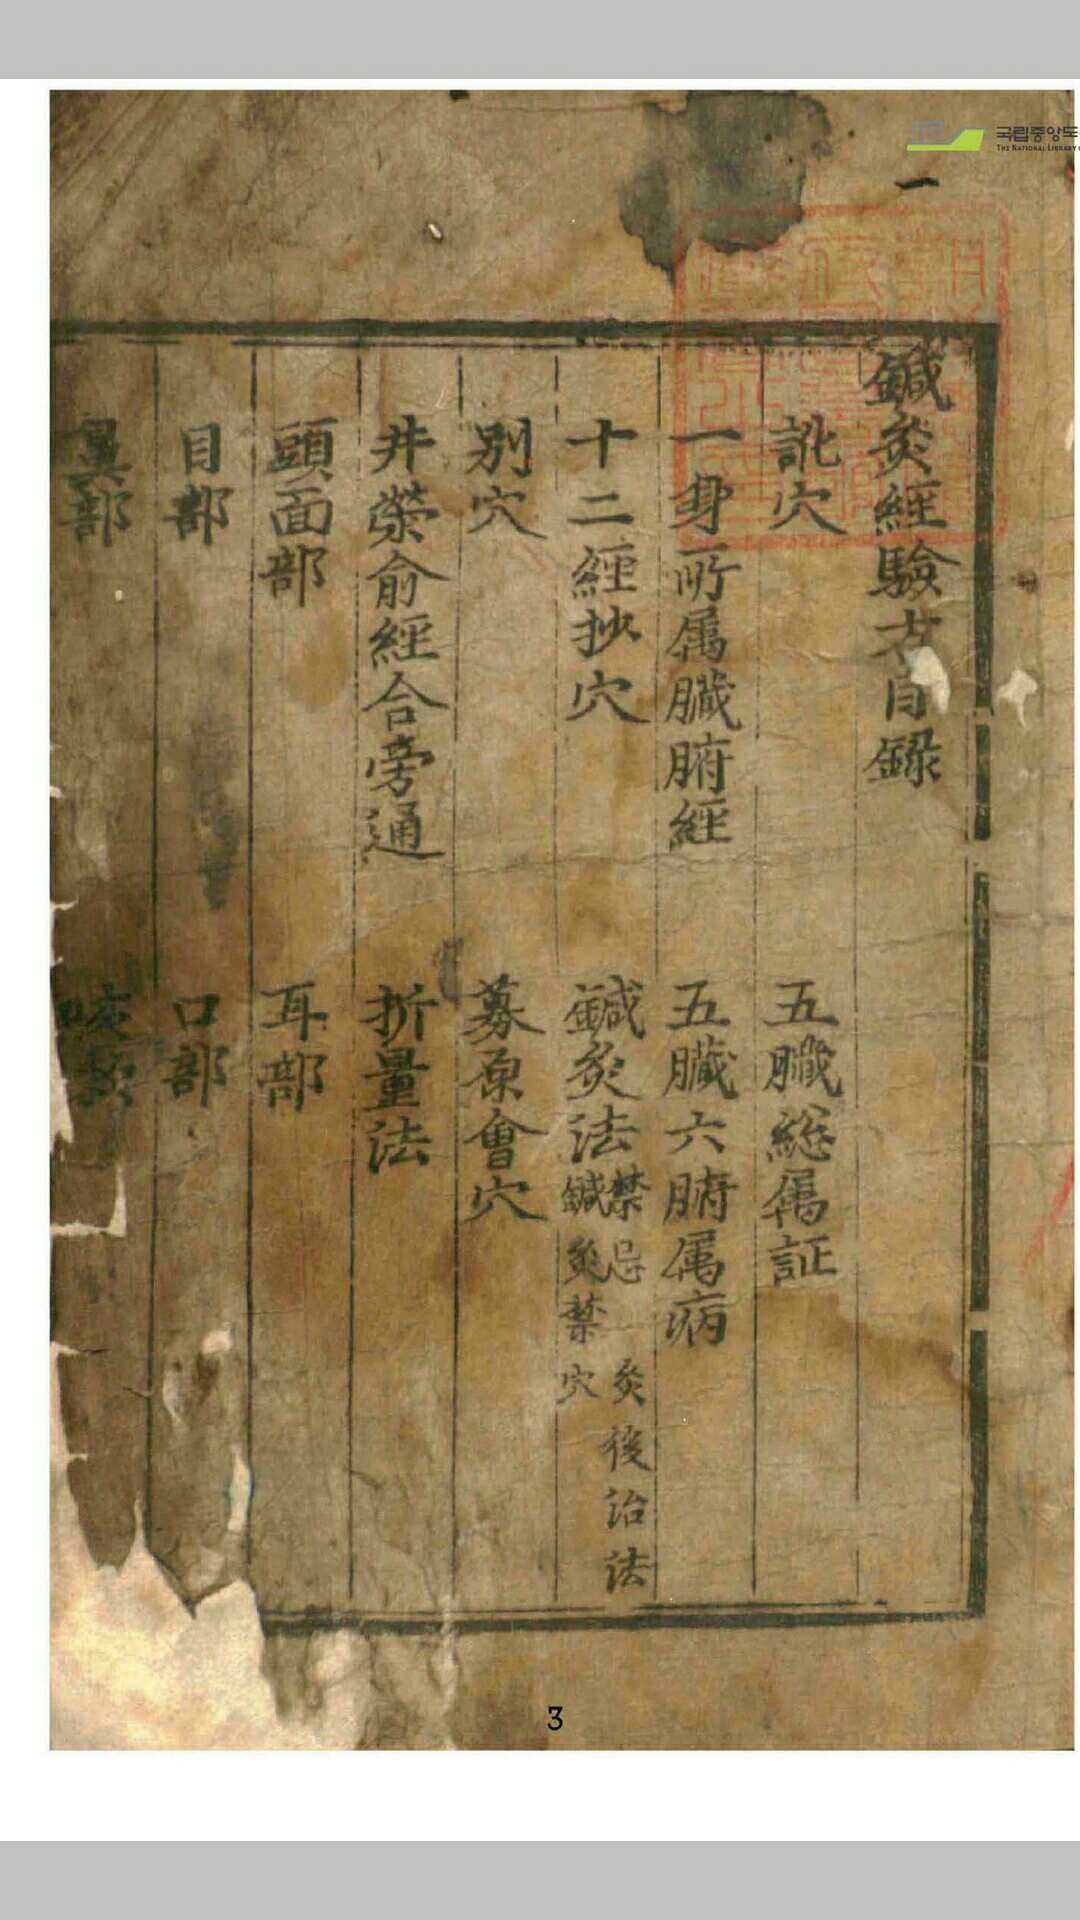 국립중앙도
THE NATIONAL LIBRARY
一
鍼灸經驗方目録
訛穴 五臓総属証
一身所属臓腑經 五臓六腑属病
十二經抄穴 鍼灸法 禁忌 灸後治法
鍼灸禁穴
別穴 募原會穴
井滎俞經合旁通 折量法
頭面部 耳部
目部 口部
鼻部 咳
3